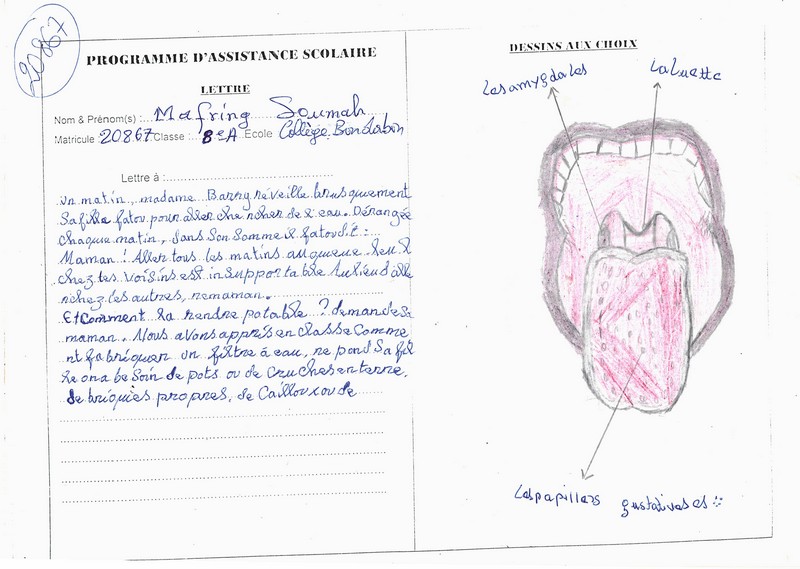 20867
PROGRAMME D'ASSISTANCE SCOLAIRE
LETTRE
Nom & Prénom(s) : Mafring Soumah
Matricule : 20867 Classe : 8eA Ecole Collège Bon
Lettre à :
un matin, madame Barry réveille brusquement
sa fille fatou pour aller chercher de l'eau. Dérangée
chaque matin, dans son sommeil fatou dit :
Maman ! Aller tous les matins
chez tes voisins est insupportable Au lieu d'alle
r chez les autres, maman.
Et comment la rendre potable ? demande sa
maman. Nous avons appris en classe comme
nt fabriquer un filtre à eau, ne pond sa fil
le on a besoin de pots ou de cruches en terre,
de briques propres, de cailloux ou de
DESSINS AUX CHOIX
Les amygdales
La Luette
Les papilles gustatives